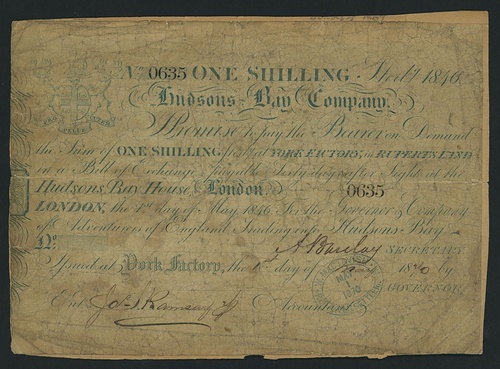 No. 0635 ONE SHILLING. Sterl'g 1846.
Hudsons Bay Company.
PRO PELLE CUTEM
Promise to pay the Bearer on Demand
the Sum of ONE SHILLING at YORK FACTORY, in RUPERTS LAND
in a Bill of Exchange payable Sixty days after Sight at the
Hudsons Bay House London. 0635
LONDON, the 1st day of May 1846 For the Governor & Company
of Adventurers of England Trading into Hudsons Bay
No. A. Barclay SECRETARY
Issued at York Factory, the 1st day of 1870 by
GOVERNOR
Ent. Jos. Ramsay Accountant
MAY
1870